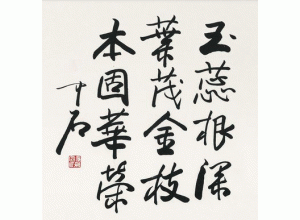 玉蕊根深
葉茂金枝
本固華榮
中石